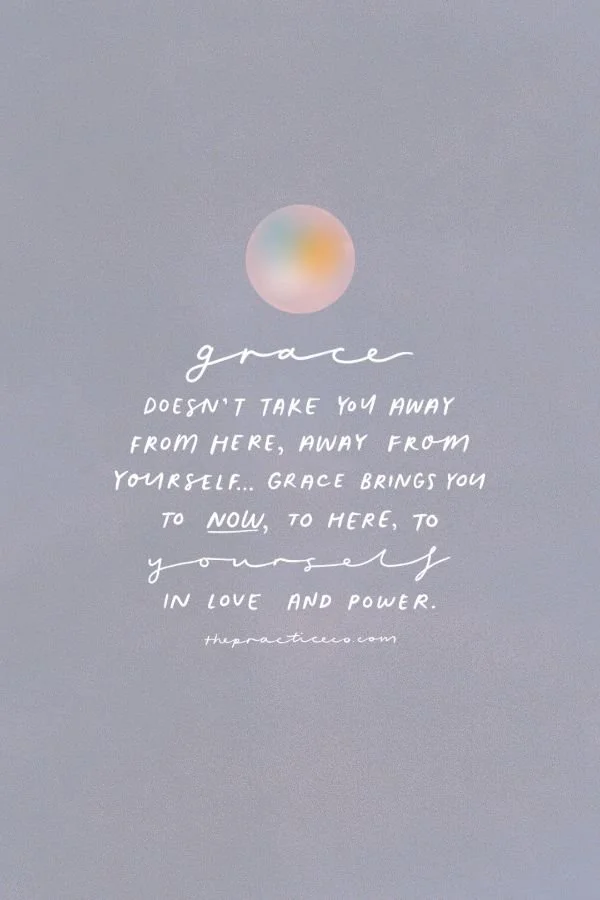 grace
DOESN'T TAKE YOU AWAY
FROM HERE, AWAY FROM
YOURSELF... GRACE BRINGS YOU
TO NOW, TO HERE, TO
yourself
IN LOVE AND POWER.
thepracticeco.com